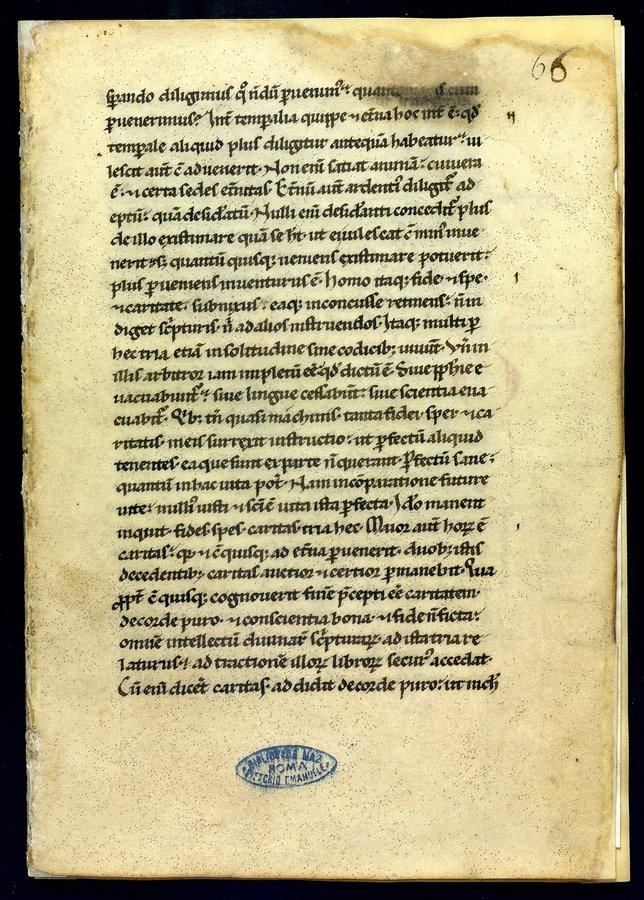 66
sperando diligimus qͥ nͦdū ꝑuenimꝰ quan cum
ꝑuenerimus? Int̄ temporalia quippe ⁊ et̄na hoc int̄ē· qd̄
temporale aliquid plus diligitur antequā habeatur· ui
lescit aut̄ c̄ aduenerit· Non eni᷑ satiat animā· cui uera
ē· ⁊ certa sedes et̄nitas· Et̄nū aut̄ ardentiꝰ diligit᷑ ad
eptū· quā desid̓atū· Nulli eni᷑ desid̓anti conceditur plus
de illo existimare quā se ht̄· ut ei uilescat c̄ minꝰ inue
nerit· s; quantū quisq; ueniens existimare potuerit·
plus ꝑueniens inuenturus ē· homo itaq; fide· ⁊ spe·
⁊ caritate· subnixus· eaq; inconcusse retinens· n̄ in
diget sc̓pturis· n̄ ad alios instruendos· Itaq; multi ꝑ
hec tria etiā in solitudine sine codicib; uiuunt· Vn̄ in
illis arbitror iam impletū ēē qd̄ dictū ē· Siue ꝓph̄ie e
uacuabunt᷑· siue lingue cessabunt· siue scientia eua
cuabit᷑· Qͥb; tn̄ quasi machinis· tanta fidei sper ⁊ ca
ritatis· in eis surrexit instructio· ut ꝑfectū aliquid
tenentes· ea que sunt ex parte n̄ querant· Ꝑfectū sane·
quantū in hac uita pot̄· Nam in cōparatione future
uite· nulliꝰ iusti ⁊ sc̄i ē uita ista ꝑfecta· Ideo manent
inquit· fides spes· caritas· tria hec· Maior aut̄ hoꝝ ē
caritas· qꝛ ⁊ c̄ quisq; ad et̄na ꝑuenerit· duob; istis
decedentib;· caritas auctior ⁊ certior ꝑmanebit· Qua
ꝓpt̄ c̄ quisq; cognouerit finē p̄cepti ēē caritatem·
de corde puro· ⁊ conscientia bona· ⁊ fide n̄ ficta·
omnē intellectū diuinaꝝ sc̓pturaꝝ· ad ista tria re
laturus· ad tractionē illoꝝ libroꝝ securꝰ accedat·
Cū eni᷑ dicet̄ caritas· addidit de corde puro· ut nich̄
BIBLIOTECA NAZ.
ROMA
VITTORIO EMANUELE